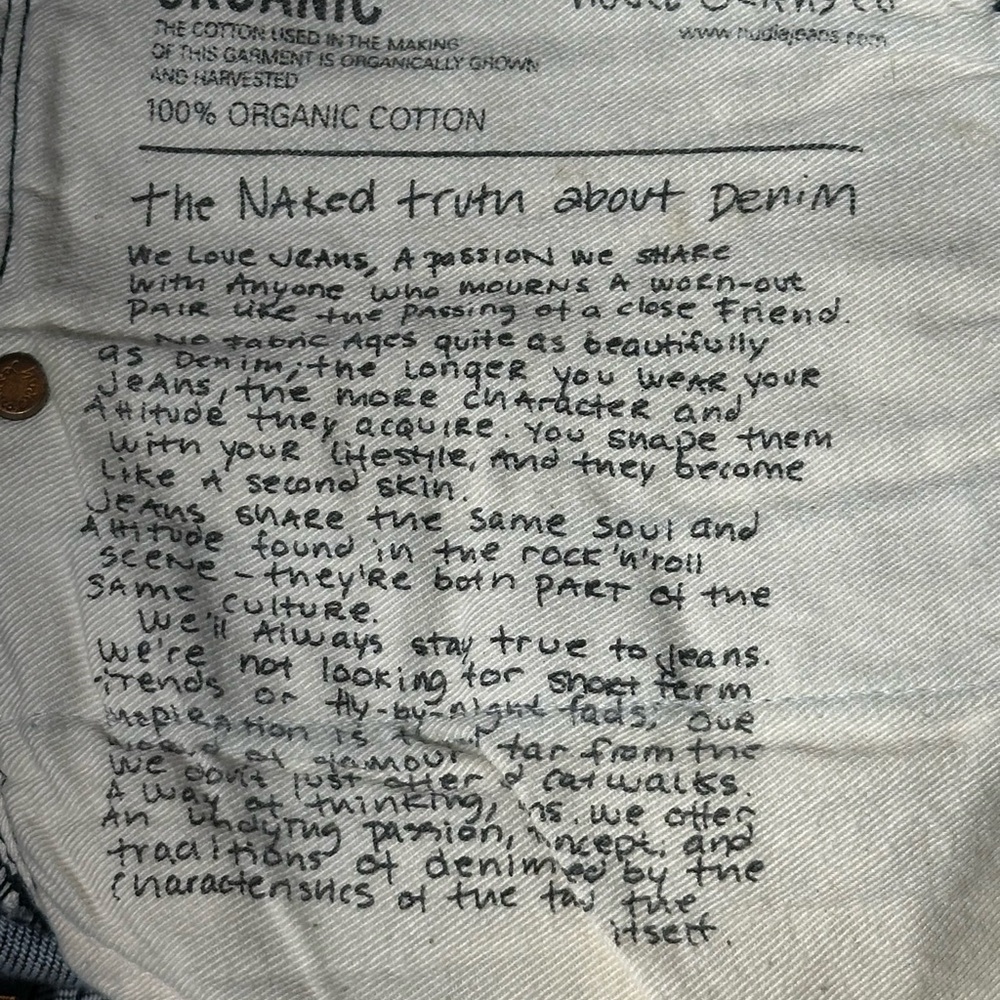 ORGANIC
THE COTTON USED IN THE MAKING
OF THIS GARMENT IS ORGANICALLY GROWN
AND HARVESTED
100% ORGANIC COTTON
www.nudiejeans.com
the NAKed truth about Denim
We Love JEANS, A passion we SHARE
with Anyone who MOURNS A worn-out
PAIR like the passing of a close Friend.
No fabric Ages quite as beautifully
as Denim; the LongeR you weAR youR
JeAns, the moRe chARacteR and
Attitude they acquire. You shape them
with youR lifestyle, And they become
like A second skin.
JeAns shARe the same soul and
Attitude found in the rock 'n' roll
scene - they'Re both pART of the
SAme culture.
We'll Always stay true to jeans.
We're not looking for short term
Trends or fly-by-night fads; ouR
inspiration is far from the
of glamour catwalks.
We don't just offer we offer
A way of thinking, and
An undying passion, by the
traditions of denim the
characteristics of the itself.